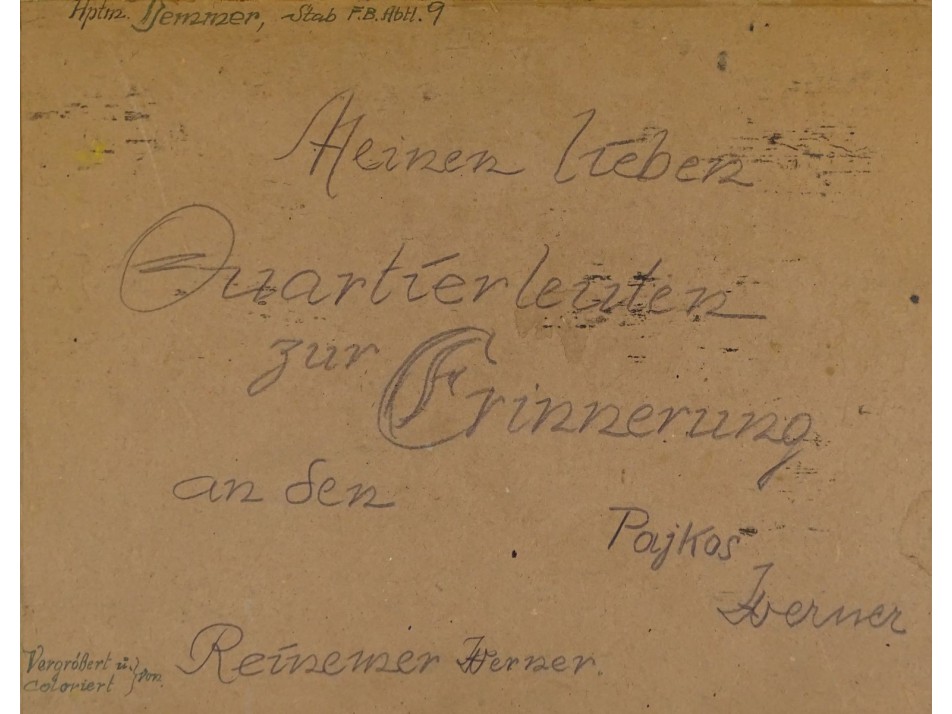 Hptm. Demmer, Stab F.B. Abtl. 9
Meinen lieben
Quartierleuten
zur Erinnerung
an den
Pajkos
Werner
Vergrößert u. coloriert } von Reinemer Werner.